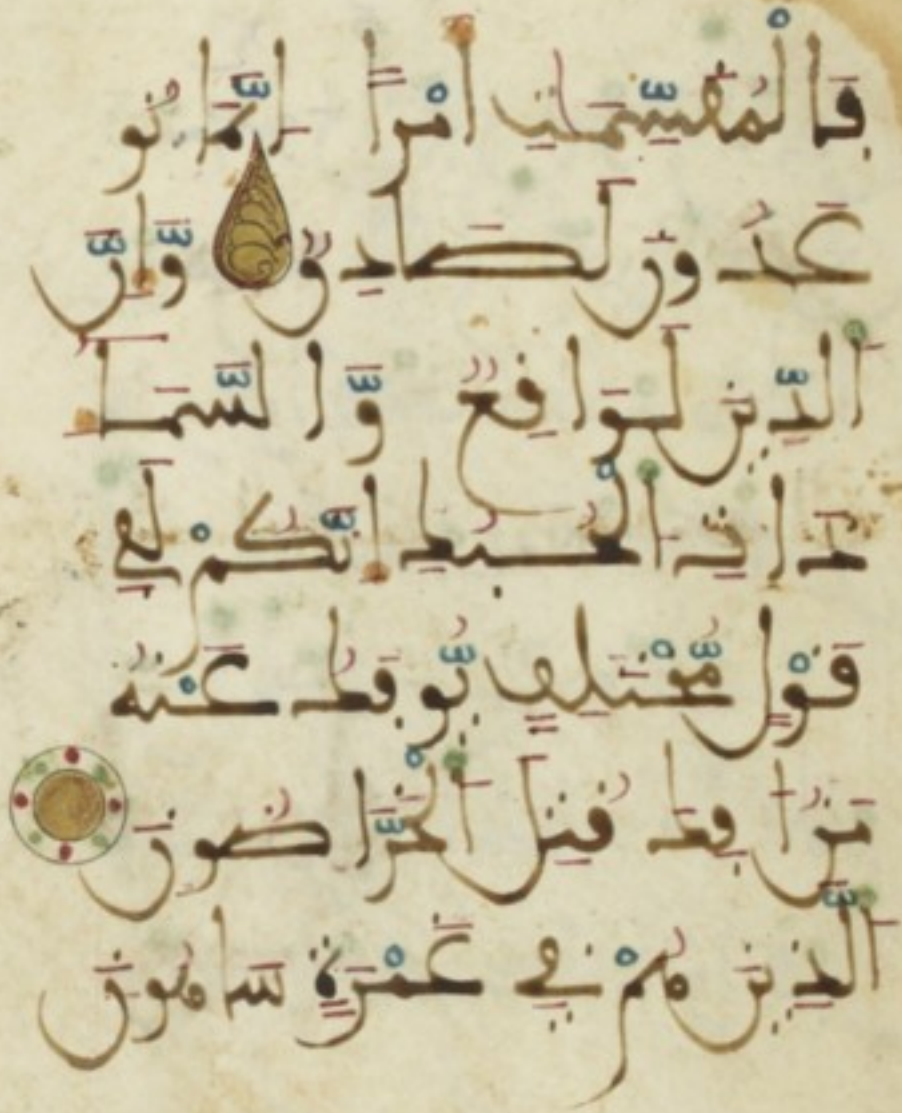 فَالْمُقَسِّمَٰتِ أَمْرًا إِنَّمَا تُو
عَدُونَ لَصَادِقٌ وَّإِنَّ
ٱلدِّينَ لَوَاقِعٌ وَّالسَّمَآ
ءِ ذَاتِ ٱلْحُبُكِ إِنَّكُمْ لَفِے
قَوْلٍ مُّخْتَلِفٍ يُّوفَكُ عَنْهُ
مَنُ ا فِكَ قُتِلَ ٱلْخَرَّاصُونَ
ٱلَّذِينَ هُمْ فِي غَمْرَةٍ سَاهُونَ